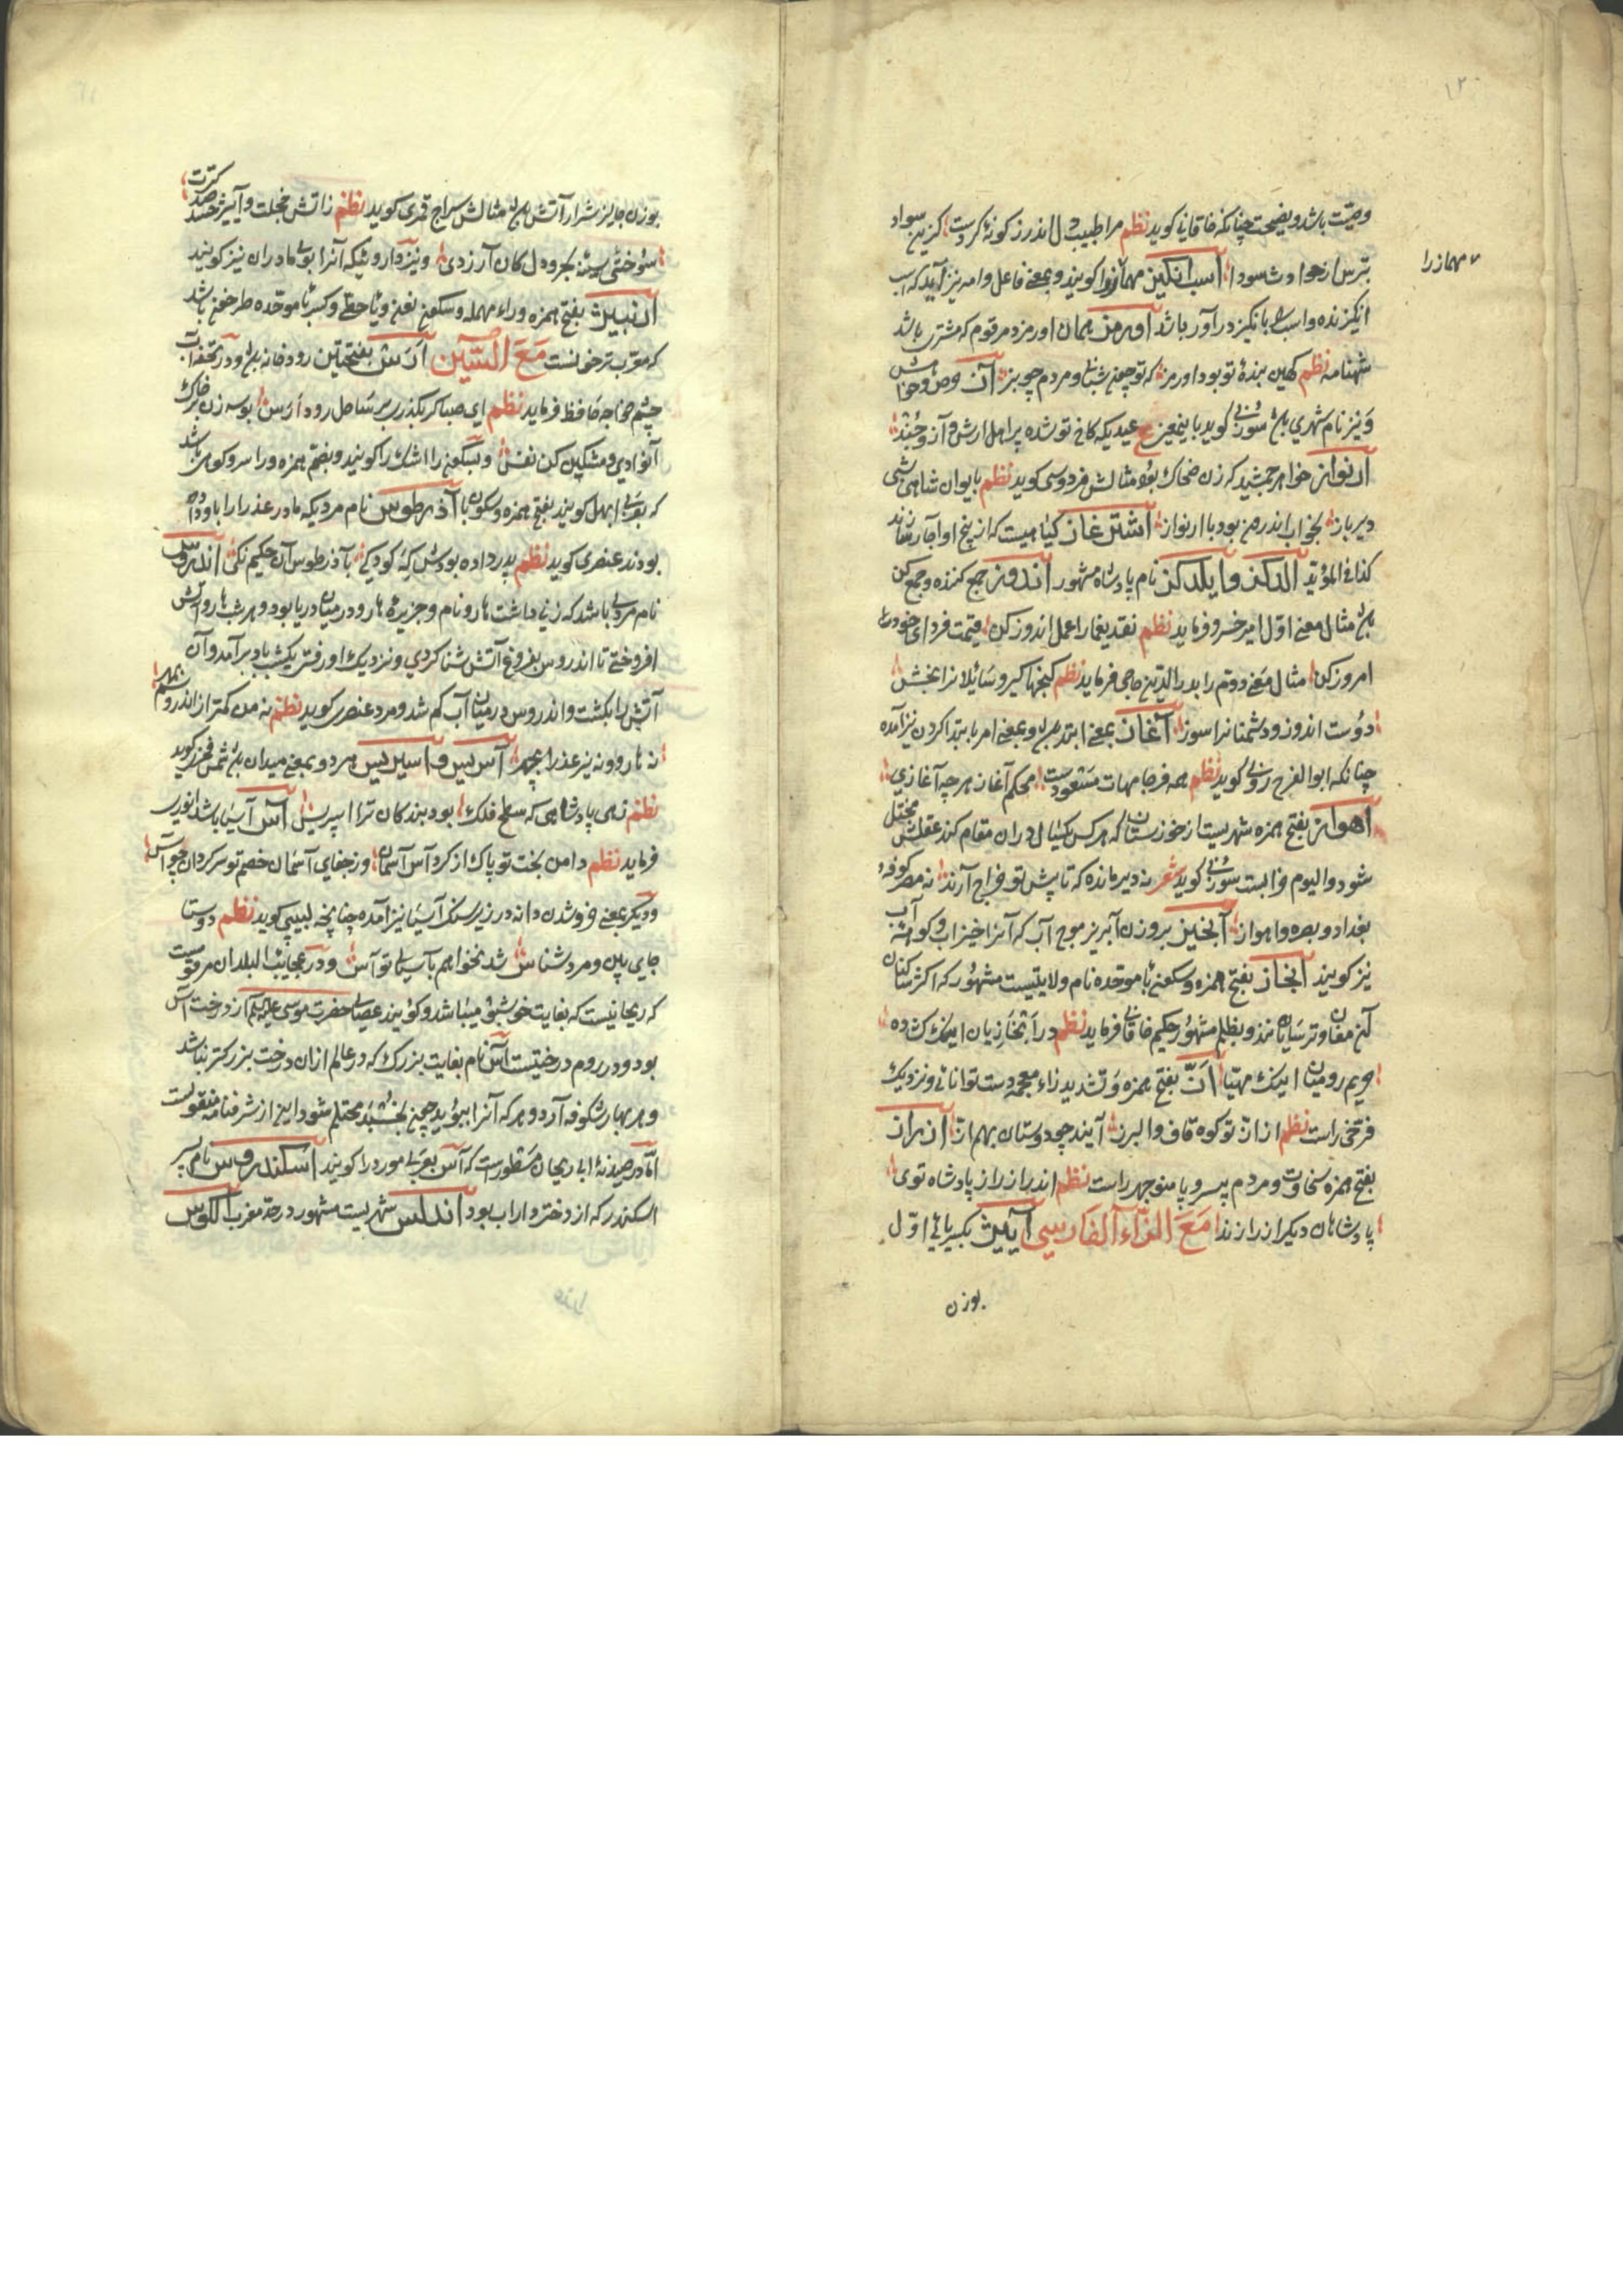 ۱۲
وصیّت باشد و نصیحت چنانکه خاقانی کوید نظم مرا طبیب دل اندرز کونهٔ کردست کزین سواد
بترس از حوادث سودا اسب انکیز مهماز را کویند و بمعنی فاعل و امر نیز آید که اسب
مهمازرا
انکیزنده و اسب را بانکیز در آور باشد اورمز همان اورمزد مرقوم که مشتری باشد
شهنامه نظم کهین بندهٔ تو بود اورمز که تو چون شبانی و مردم چو بز آز حرص و خواهش
و نیز نام شهری سوزنی کوید باین معنی ع عیدیکه کاخ تو شده پر اهل ارش و آز و جند
ارنواز خواهر جمشید که زن ضحاک بود مثالش فردوسی کوید نظم بایوان شاهی شبی
دیر باز بخواب اندرون بود با ارنواز اشترغاز کیاهیست که از بیخ او آچار سازند
کذا فی المؤید الدکز و ایلدکز نام پادشاه مشهور اندوز جمع کننده و جمع کن
مثال معنی اوّل امیر خسرو فرماید نظم نقد یغما را عمل اندوز کن قیمت فردای خود را
امروز کن مثال معنی دوّم را بدر الدین جاجی فرماید نظم کنجها کیر و سائلانرا بخش
دوست اندوز و دشمنانرا سوز آغاز بمعنی ابتدا و بمعنی امر بابتدا کردن نیز آمده
چنانکه ابوالفرج رونی کوید نظم همه فرجامهات مسعودست محکم آغاز هرچه آغازی
اهواز بفتح همزه شهریست از خوزستان که هر کس یکسال در آن مقام کند عقلش مختل
شود و الیوم خرابست سوزنی کوید شعر نه دیر مانده که تا پیش تو خراج آرند نه مصر کوفه و
بغداد و بصره و اهواز آبخیز بروزن آبریز موج آب که آنرا خیزاب و کوهه آب
نیز کویند ابخاز بفتح همزه و سکون با موحّده نام ولایتیست مشهور که اکثر ساکنان
آن مغان و ترسایانند و بظلم مشهور حکیم خاقانی فرماید نظم در ابخازیان اینک کشاده
حریم رومیان اینک مهیّا ازّ بفتح همزه و تشدید زاء معجمه دست توانائی و نزدیک
فرخی راست نظم از ازّ تو کوه قاف و البرز آیند چو دوستان بهم ازّ ازراز
بفتح همزه سخاوت و مردم بی سر و پا منوچهر راست نظم اندر ازراز پادشاه توی
پادشاهان دیکر ازرازند مَعَ الزّاء الفارسی آییژ بکسر یای اوّل
بوزن
بوزن جایز شرار آتش مثالش سراج قمری کوید نظم ز آتش خجلت و آییژ حسد
سوختی سینهٔ بحر و دل کان آرزدی و نیز دارویی که آنرا بوی مادران نیز کویند
ارنبیژ بفتح همزه و راء مهمله و سکون نون و یا حطّی و کسر با موحّده طرخون باشد
که معرّب ترخونست مَعَ السّین ارس بفتحتین رودخانه و در
چشم خواجه حافظ فرماید نظم ای صبا کر بکذری بر ساحل رود ارس بوسه زن بر خاک
آن وادی و مشکین کن نفس و اشک را کویند و بضمّ همزه و را سرو کوهی باشد
که بعربی ابهل کویند بفتح همزه و سکون با آذرطوس نام مردیکه مادر عذرا را باو داده
بودند عنصری کوید نظم پدر داده بودش که کودکی بآذرطوس آن حکیم نکی اندروس
نام مردی باشد که زنی داشت هارو نام و جزیرهٔ هارو در میان دریا بود و هر شب هارو آتش
افروختی تا اندروس بفروغ آتش شنا کردی و نزدیک او رفتی یکشب باد بر آمد و آن
آتش را بکشت و اندروس در میان آب کم شد و مرد عنصری کوید نظم نه من کمتر از اندروسم بمهر
نه هارو و نه نیز عذرا بچهر اسپریس و اسپرلیس هر دو بمعنی میدان شمس فخری کوید
نظم زهی پادشاهی که سطح فلک بود بندکان ترا اسپریس آس آسیا باشد انوری
فرماید نظم دامن بخت تو پاک از کرد آس آسمان وز جفای آسمان خصم تو سرکردان چو آس
و دیکر بمعنی خرد شدن دانه در زیر سنک آسیا نیز آمده چنانچه لبیبی کوید نظم دوستا
جای بین و مرد شناس شد نخواهم بآسیای تو آس و در عجایب البلدان مرقومست
که ریحانیست که بغایت خوشبوی میباشد و کویند عصای حضرت موسی علیه السلام از درخت آس
بود و در روم درختیست آس نام بغایت بزرک که در عالم از آن درخت بزرکتر نباشد
و هر بهار شکوفه آرد و هر که آنرا ببوید چون بخسبد محتلم شود این از شرفنامه منقولست
امّا در صیدنهٔ ابی ریحان مسطورست که آس بعربی مورد را کویند اسکندروس نام پسر
اسکندر که از دختر داراب بود اندلس شهریست مشهور در حدّ مغرب الکوس